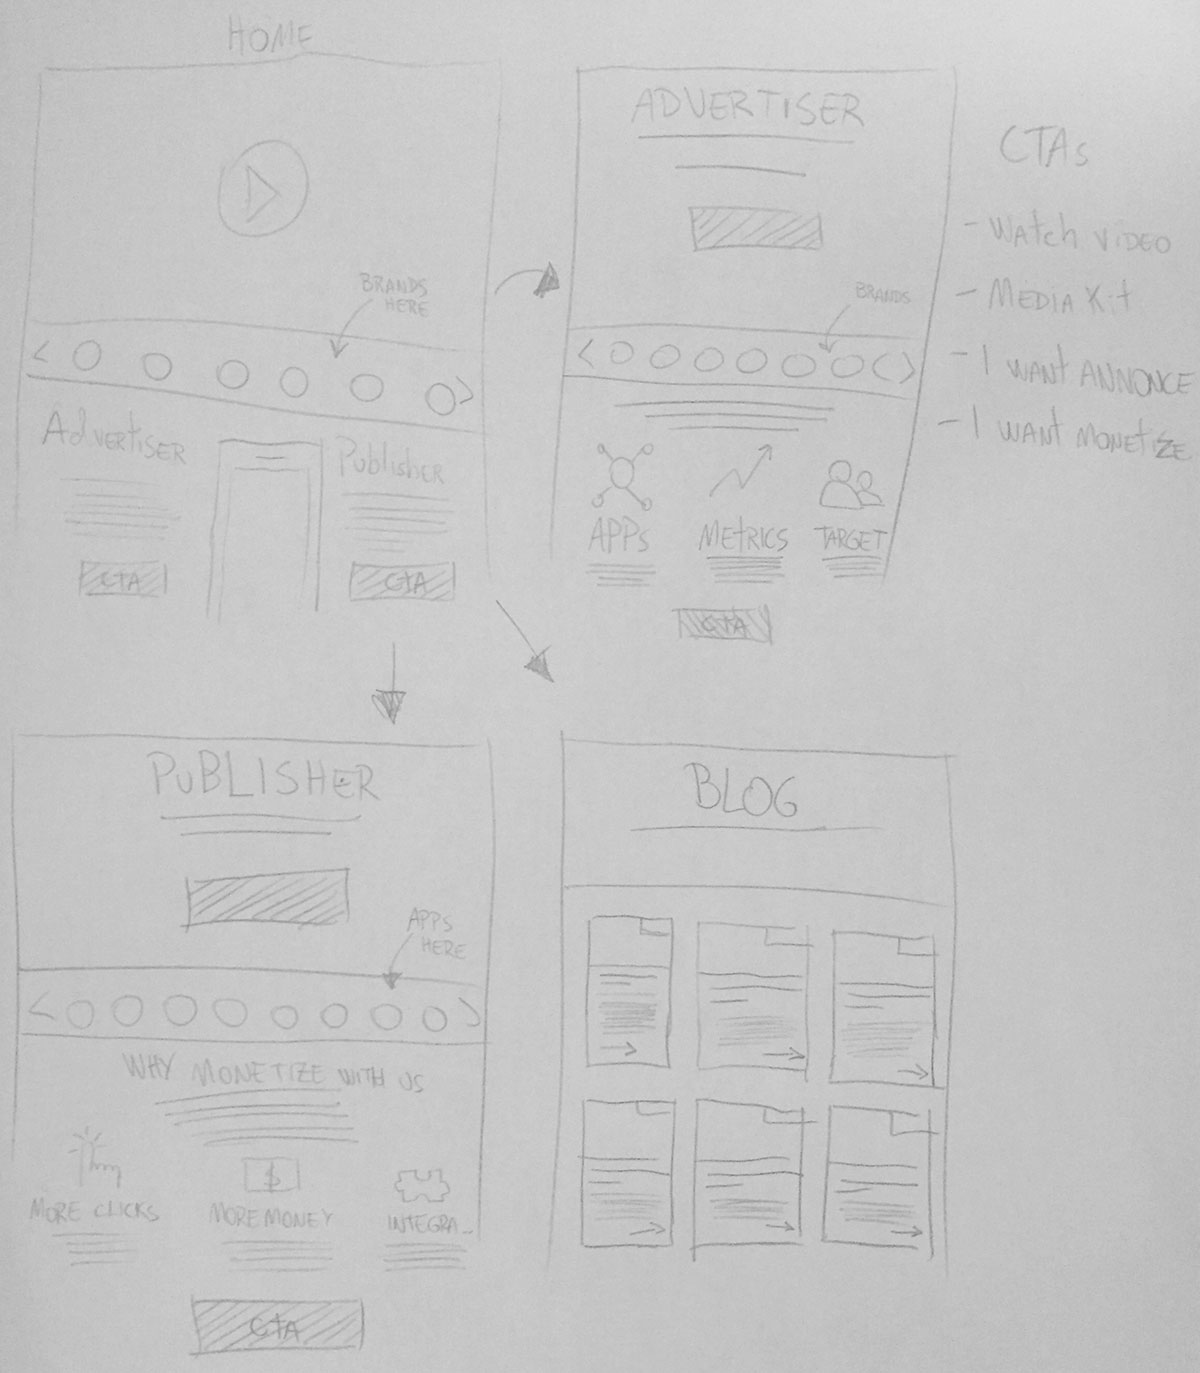 HOME
BRANDS
HERE
Advertiser
Publisher
CTA
CTA
ADVERTISER
BRANDS
APPs
METRICS
TARGET
CTA
CTAs
- Watch VIDEO
- MEDIA Kit
- I WANT ANNONCE
- I WANT MONETIZE
PuBLISHER
APPS
HERE
WHY MONETIZE WITH US
$
MORE CLICKS
MORE MONEY
INTEGRA...
CTA
BLOG